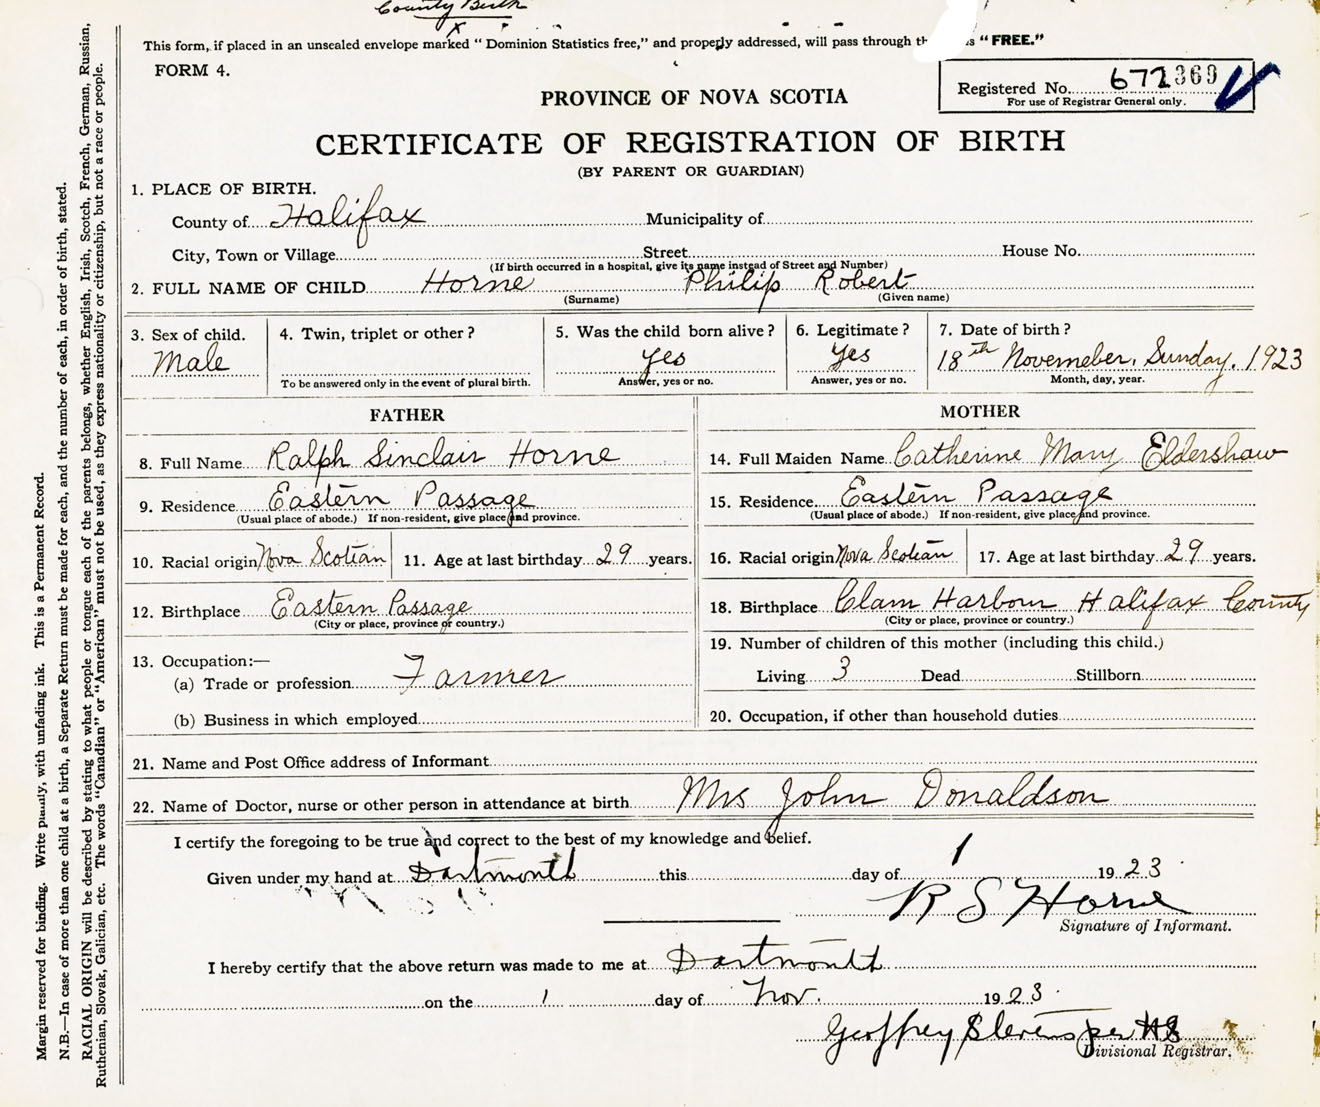 County Birth
This form, if placed in an unsealed envelope marked "Dominion Statistics free," and properly addressed, will pass through "FREE."
FORM 4.
Registered No. 672369
For use of Registrar General only.
PROVINCE OF NOVA SCOTIA
CERTIFICATE OF REGISTRATION OF BIRTH
(BY PARENT OR GUARDIAN)
1. PLACE OF BIRTH.
County of Halifax Municipality of
City, Town or Village Street House No.
(If birth occurred in a hospital, give its name instead of Street and Number)
2. FULL NAME OF CHILD Horne Philip Robert
(Surname) (Given name)
3. Sex of child. Male
4. Twin, triplet or other?
To be answered only in the event of plural birth.
5. Was the child born alive? yes
Answer, yes or no.
6. Legitimate? yes
Answer, yes or no.
7. Date of birth?
18th Novemeber. Sunday. 1923
Month, day, year.
FATHER
8. Full Name Ralph Sinclair Horne
9. Residence Eastern Passage
(Usual place of abode.) If non-resident, give place and province.
10. Racial origin Nova Scotian 11. Age at last birthday 29 years.
12. Birthplace Eastern Passage
(City or place, province or country.)
13. Occupation:—
(a) Trade or profession Farmer
(b) Business in which employed
MOTHER
14. Full Maiden Name Catherine Mary Eldershaw
15. Residence Eastern Passage
(Usual place of abode.) If non-resident, give place and province.
16. Racial origin Nova Scotian 17. Age at last birthday 29 years.
18. Birthplace Clam Harbour Halifax County
(City or place, province or country.)
19. Number of children of this mother (including this child.)
Living 3 Dead Stillborn
20. Occupation, if other than household duties
21. Name and Post Office address of Informant
22. Name of Doctor, nurse or other person in attendance at birth Mrs John Donaldson
I certify the foregoing to be true and correct to the best of my knowledge and belief.
Given under my hand at Dartmouth this day of 1 1923
R S Horne
Signature of Informant.
I hereby certify that the above return was made to me at Dartmouth
on the 1 day of Nov. 1923.
Geoffrey Stevens per
Divisional Registrar.
Margin reserved for binding. Write plainly, with unfading ink. This is a Permanent Record.
N.B.—In case of more than one child at a birth, a Separate Return must be made for each, and the number of each, in order of birth, stated.
RACIAL ORIGIN will be described by stating to what people or tongue each of the parents belongs, whether English, Irish, Scotch, French, German, Russian,
Ruthenian, Slovak, Galician, etc. The words "Canadian" or "American" must not be used, as they express nationality or citizenship, but not a race or people.